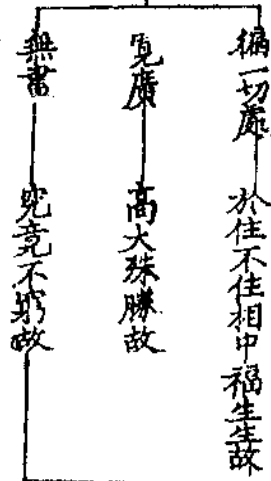 徧一切處 於住不住相中福生生故
寬廣 高大殊勝故
無盡 究竟不窮故